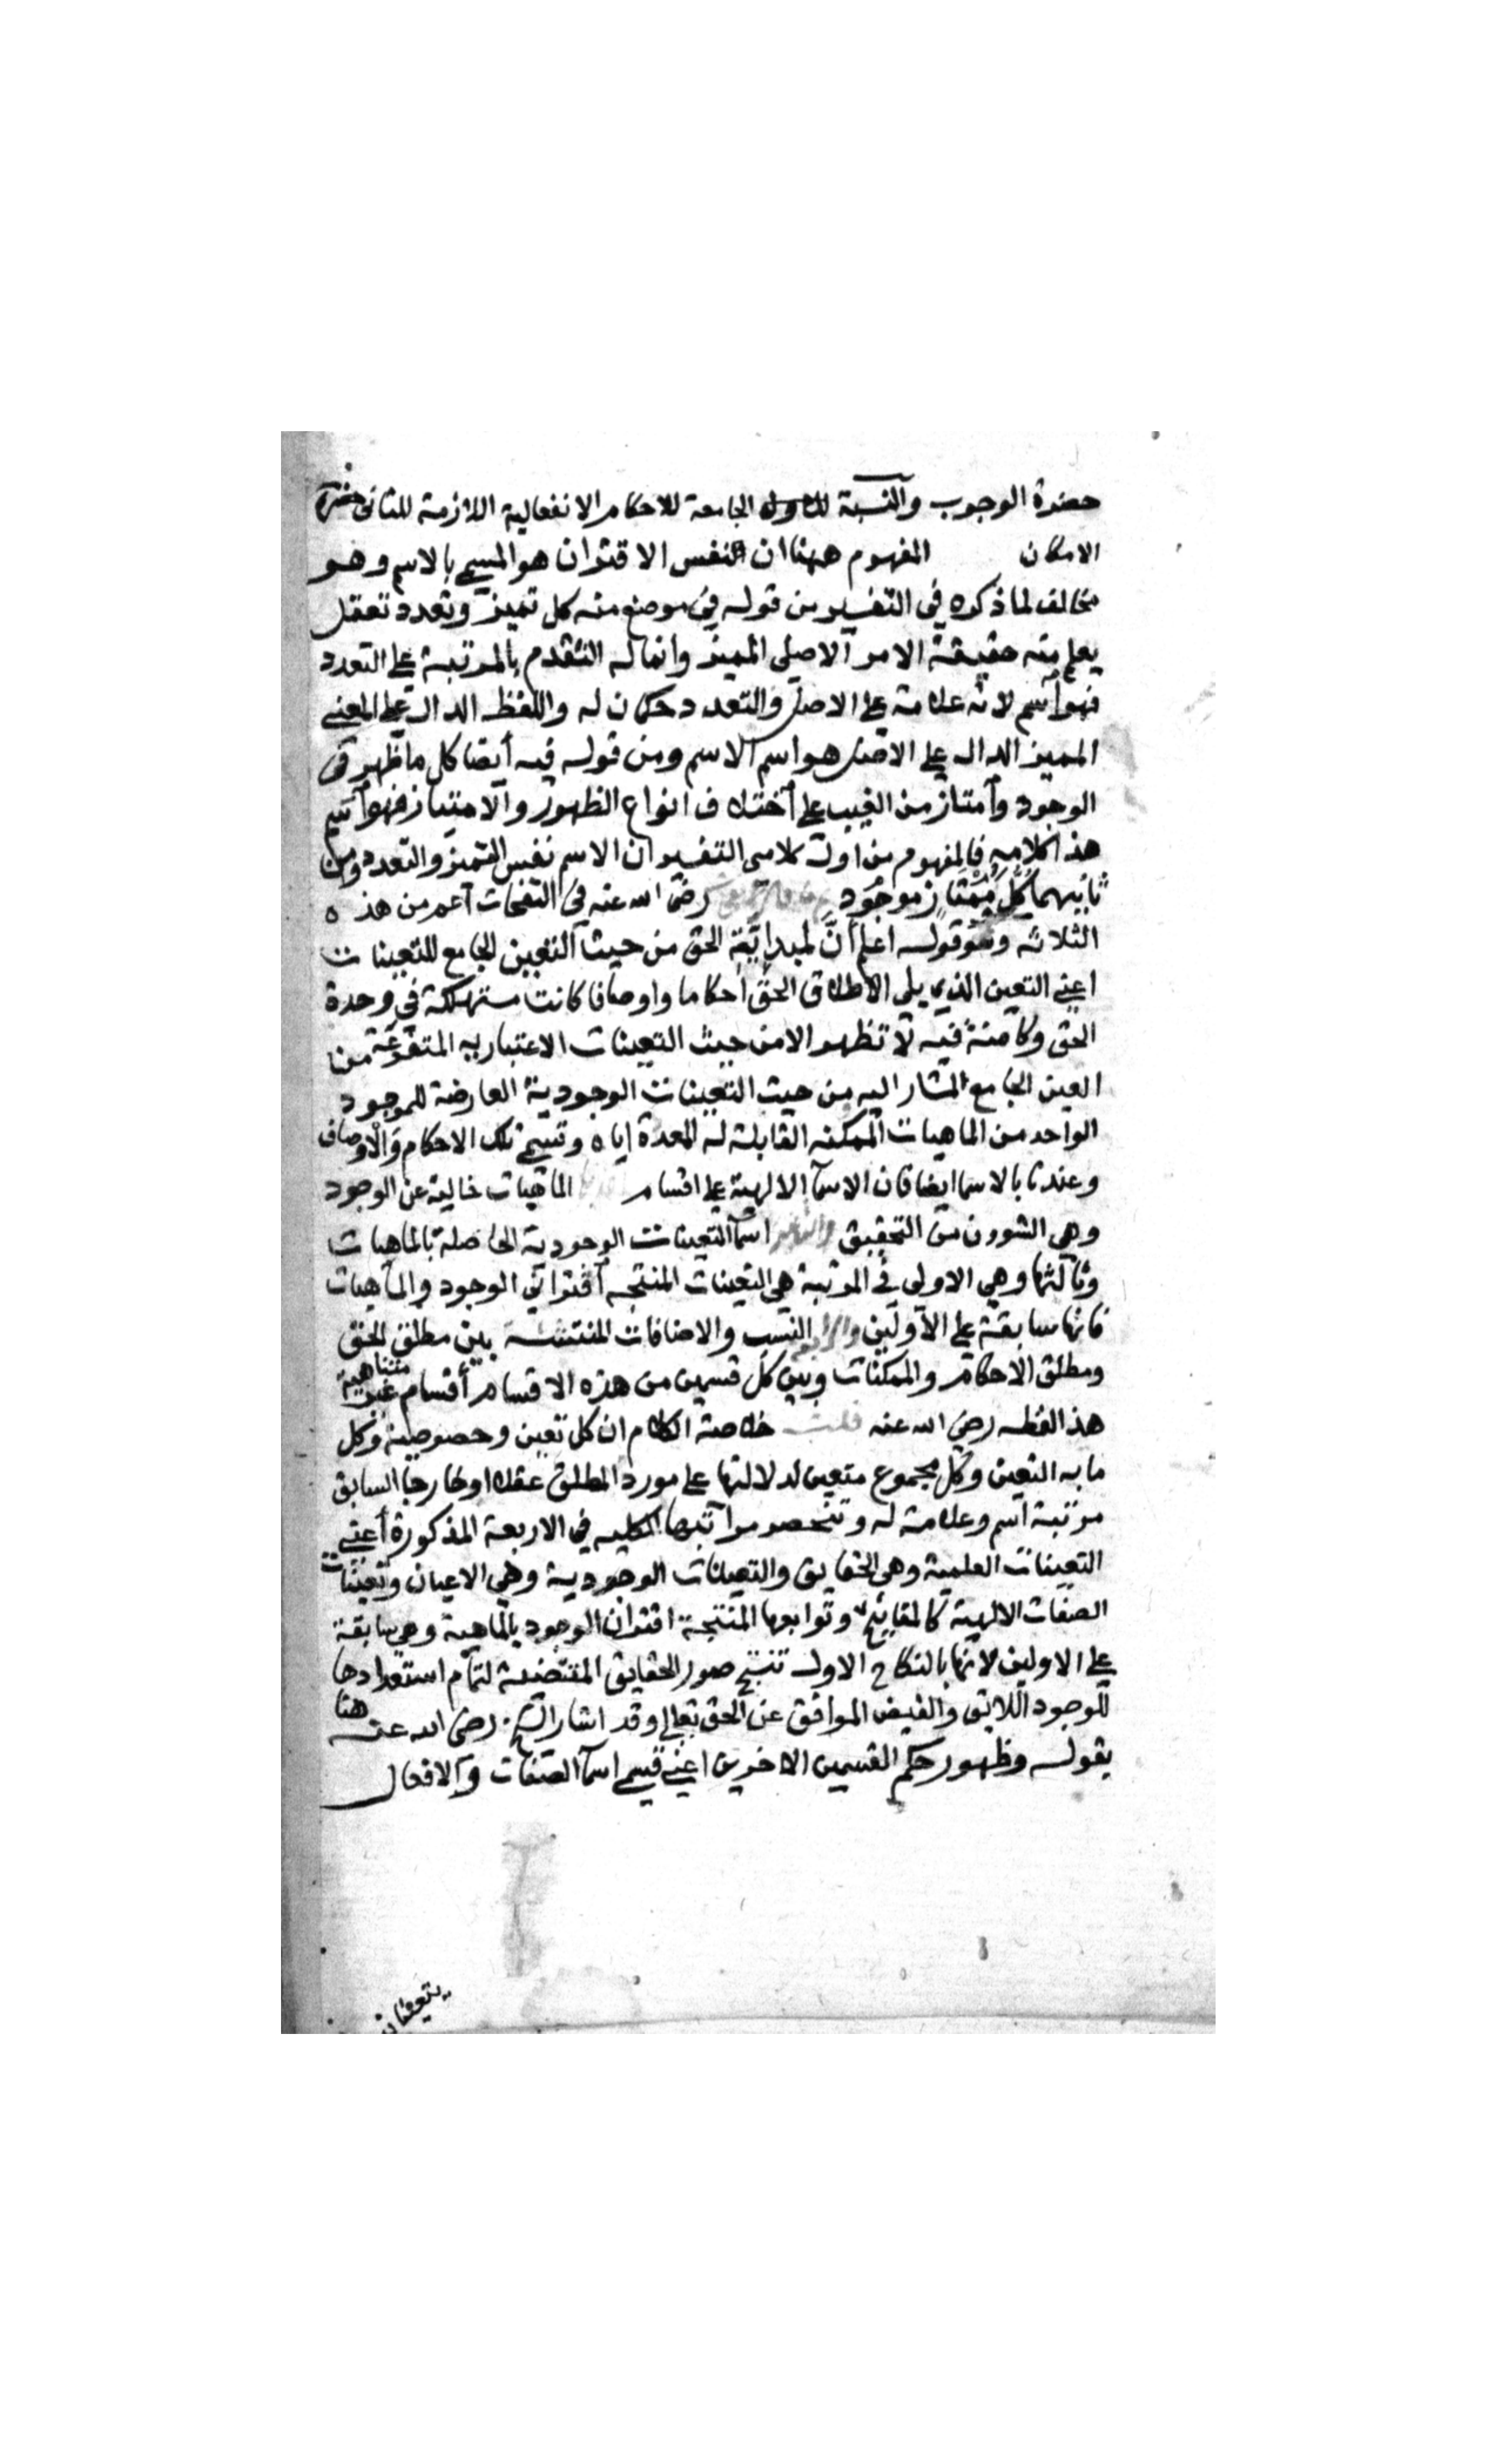 حضرة الوجوب والنسبة الجامعة للاحكام الانفعالية اللازمة للثانى حضرة
الامكان المفهوم ههنا ان النفس الاقتران هو المسمى بالاسم وهو
مخالف لما ذكره فى التفسير من قوله فى موضع منه كل تميز وتعدد تعقل
يعلم منه حقيقة الامر الاصلى المميز وانما له التقدم بالمرتبة على التعدد
فهو اسم لانه علامة على الاصل والتعدد حكان له واللفظ الدال على المعنى
المميز الدال على الاصل هو اسم الاسم ومن قوله فيه أيضا كل ما ظهر فى
الوجود وامتاز من الغيب على اختلاف انواع الظهور والامتياز فهو اسم
هذا كلامه فالمفهوم من اول كلامى التفسير ان الاسم نفس التميز والتعدد ومن
ثانيهما كل ممتاز موجود رضى الله عنه فى النفحات اعم من هذه
الثلاثة وهو قوله اعلم ان لمبدايّة الحق من حيث التعين الجامع للتعينات
اعنى التعين الذى يلى الاطلاق الحق أحكاما واوصافا كانت مستهلكة فى وحدة
الحق وكامنة فيه لا تظهر الا من حيث التعينات الاعتباريه المتفرعة من
العين الجامع المشار اليه من حيث التعينات الوجودية العارضة للموجود
الواحد من الماهيات الممكنه القابلة له المعدة اياه وتسمى تلك الاحكام والاوصاف
وعندنا بالاسما ايضا فان الاسما الالهية على اقسام الماهيات خالية عن الوجود
وهى الشوون من التحقيق والثانية اسما التعينات الوجودية الحاصلة بالماهيات
وثالثها وهى الاولى فى المرتبة هى التعينات المنتجه اقترانى الوجود والماهيات
فانها سابقة على الاولين والرابعة النسب والاضافات المنتشئة بين مطلق الحق
ومطلق الاحكام والممكنات وبين كل قسمين من هذه الاقسام أقسام غير متناهية
هذا لفظه رضى الله عنه قلت خلاصة الكلام ان كل تعين وخصوصية وكل
ما به التعين وكل مجموع متعين لدلالتها على مورد المطلق عقلا او خارجا السابق
مرتبة اسم وعلامة له وتنحصر مراتبها الكليه فى الاربعة المذكورة أعنى
التعينات العلمية وهى الحقايق والتعينات الوجودية وهى الاعيان وتعينات
الصفات الالهية كالمفاتيح وتوابعها المنتجة اقتران الوجود بالماهية وهى سابقة
على الاولين لانها بالنكاح الاول تنتج صور الحقايق المقتضية لتمام استعدادها
للوجود اللايق والفيض الموافق عن الحق تعالى وقد اشار الشيخ رضى الله عنه هنا
بقوله وظهور حكم القسمين الاخرين اعنى قسمى اسما الصفات والافعال
يتعينان